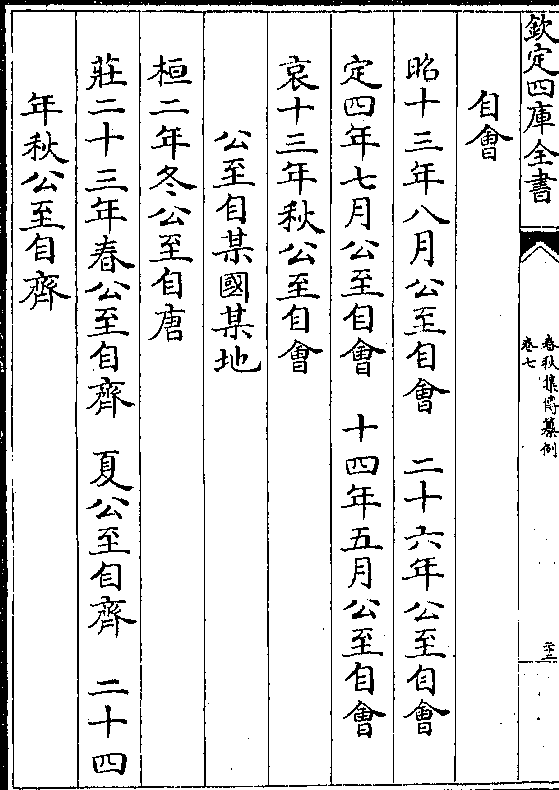 欽定四庫全書
春秋集傳纂例
卷七
自會
昭十三年八月公至自會　二十六年公至自會
定四年七月公至自會　十四年五月公至自會
哀十三年秋公至自會
公至自某國某地
桓二年冬公至自唐
莊二十三年春公至自齊　夏公至自齊　二十四
年秋公至自齊